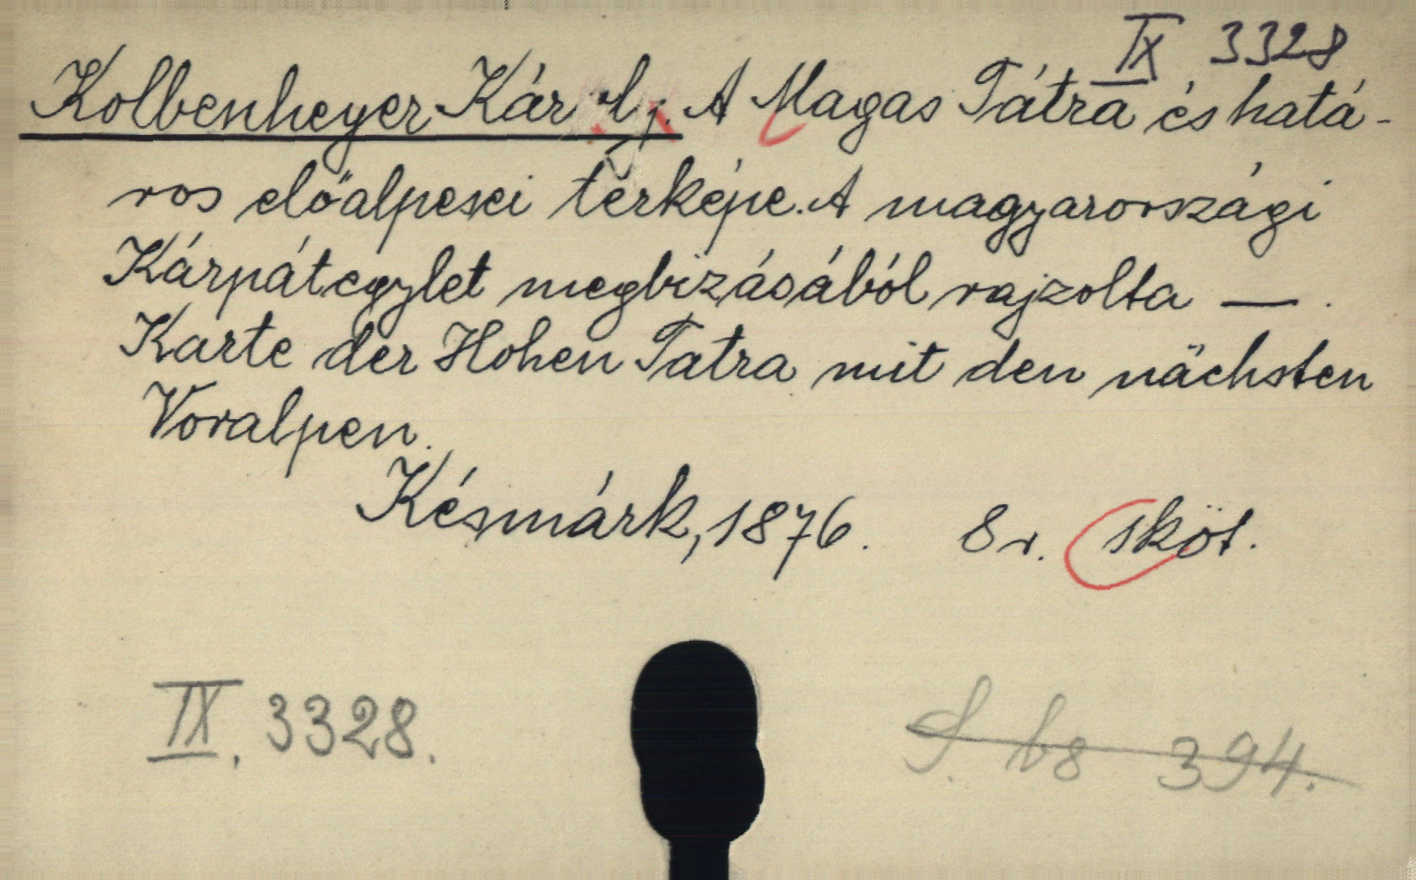 IX 3328
Kolbenheyer Károly: A Magas Tátra és hatá-
ros előalpesei térképe. A magyarországi
Kárpátegylet megbizásából rajzolta —.
Karte der Hohen Tatra mit den nächsten
Voralpen.
Késmárk, 1876. 8r. sköt.
IX. 3328.
394.